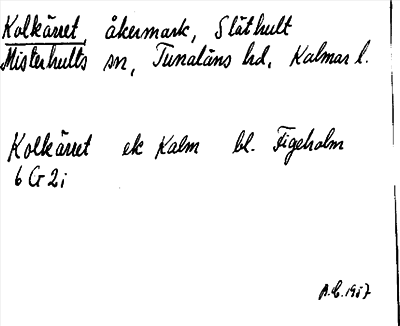 Kolkärret, åkermark, Slåthult
Misterhults sn, Tunaläns hd, Kalmar l.
Kolkärret ek Kalm bl. Figeholm
6 G 2 i
A.C. 1957